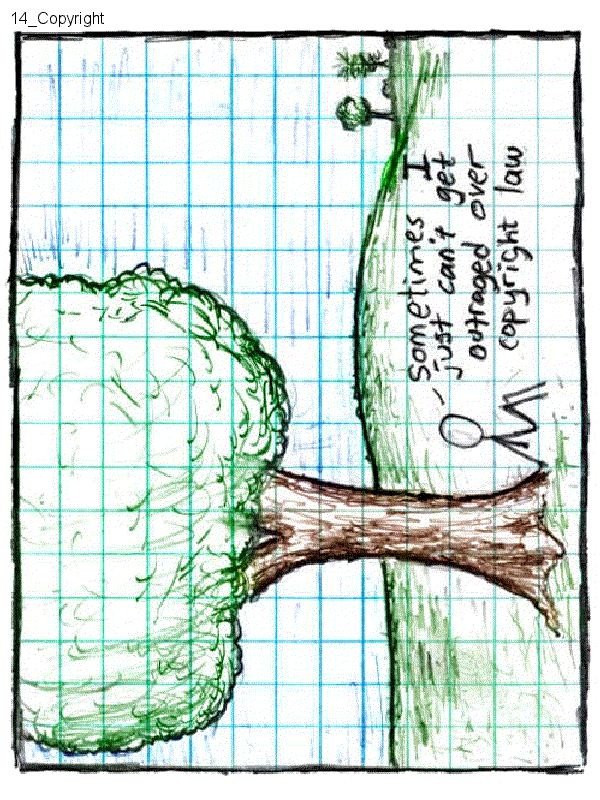 14_Copyright
Sometimes I
just can't get
outraged over
copyright law